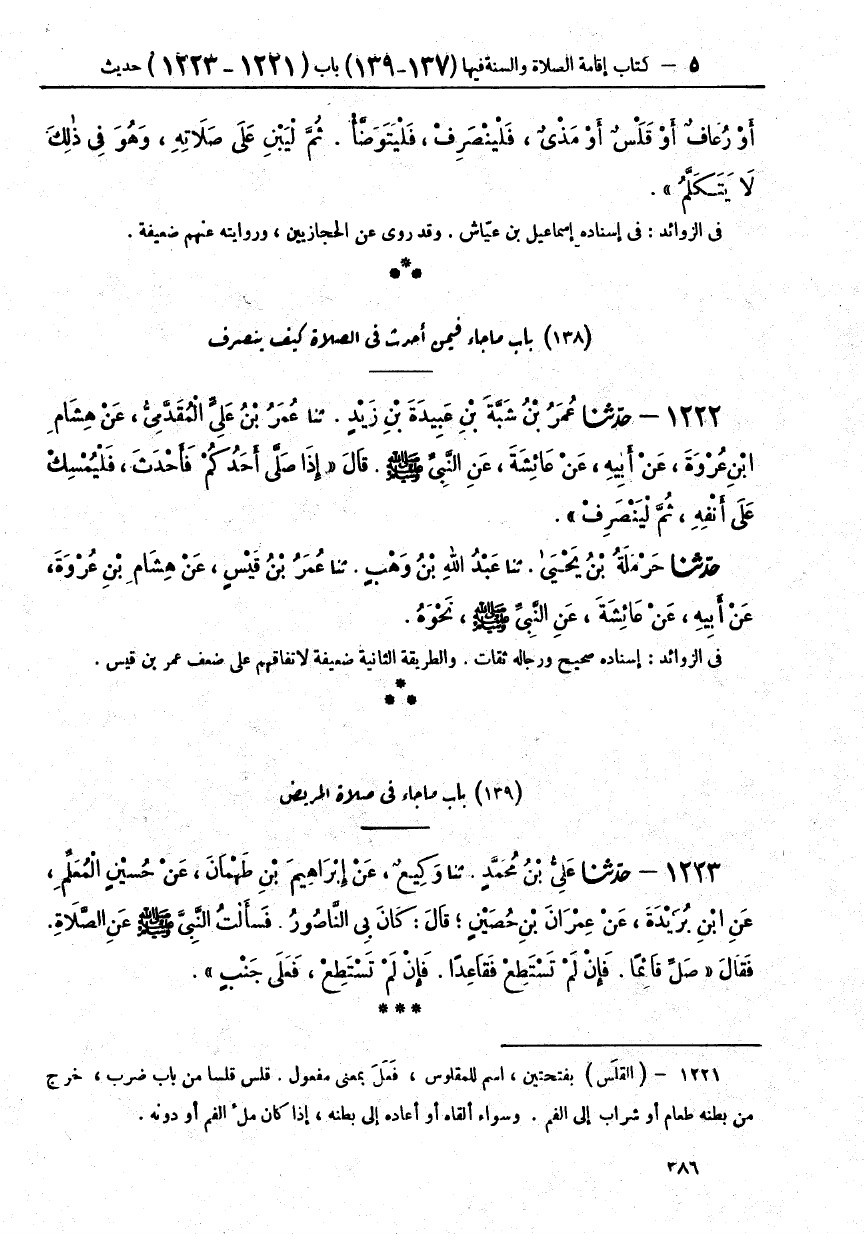 ٥ – كتاب إقامة الصلاة والسنة فيها (١٣٧-١٣٩) باب (١٢٢١ - ١٢٢٣) حديث
أَوْ رُعَافٌ أَوْ قَلَسٌ أَوْ مَذْىٌ ، فَلْيَنْصَرِفْ ، فَلْيَتَوَضَّأْ . ثُمَّ لْيَبْنِ عَلَى صَلَاتِهِ ، وَهُوَ فِى ذٰلِكَ
لَا يَتَكَلَّمُ » .
فى الزوائد : فى إسناده إسماعيل بن عيّاش . وقد روى عن الحجازيين ، وروايته عنهم ضعيفة .
***
(١٣٨) باب ماجاء فيمن أحدث فى الصلاة كيف ينصرف
١٢٢٢ – حدّثنا عُمَرُ بْنُ شَبَّةَ بْنِ عَبِيدَةَ بْنِ زَيْدٍ . ثنا عُمَرُ بْنُ عَلِيٍّ الْمُقَدَّمِيُّ ، عَنْ هِشَامِ
ابْنِ عُرْوَةَ ، عَنْ أَبِيهِ ، عَنْ عَائِشَةَ ، عَنِ النَّبِيِّ ﷺ . قَالَ « إِذَا صَلَّى أَحَدُكُمْ فَأَحْدَثَ ، فَلْيُمْسِكْ
عَلَى أَنْفِهِ ، ثُمَّ لْيَنْصَرِفْ » .
حدّثنا حَرْمَلَةُ بْنُ يَحْيَىٰ . ثنا عَبْدُ اللهِ بْنُ وَهْبٍ . ثنا عُمَرُ بْنُ قَيْسٍ ، عَنْ هِشَامِ بْنِ عُرْوَةَ ،
عَنْ أَبِيهِ ، عَنْ عَائِشَةَ ، عَنِ النَّبِيِّ ﷺ ، نَحْوَهُ .
فى الزوائد : إسناده صحيح ورجاله ثقات . والطريقة الثانية ضعيفة لاتفاقهم على ضعف عمر بن قيس .
***
(١٣٩) باب ماجاء فى صلاة المريض
١٢٢٣ – حدّثنا عَلِيُّ بْنُ مُحَمَّدٍ . ثنا وَكِيعٌ ، عَنْ إِبْرَاهِيمَ بْنِ طَهْمَانَ ، عَنْ حُسَيْنٍ الْمُعَلِّمِ ،
عَنِ ابْنِ بُرَيْدَةَ ، عَنْ عِمْرَانَ بْنِ حُصَيْنٍ ؛ قَالَ : كَانَ بِى النَّاصُورُ . فَسَأَلْتُ النَّبِيَّ ﷺ عَنِ الصَّلَاةِ .
فَقَالَ « صَلِّ قَائِمًا . فَإِنْ لَمْ تَسْتَطِعْ فَقَاعِدًا . فَإِنْ لَمْ تَسْتَطِعْ ، فَعَلَى جَنْبٍ » .
***
١٢٢١ – (القَلَس) بفتحتين ، اسم للمقلوس ، فَعَلَ بمعنى مفعول . قلس قلسا من باب ضرب ، خرج
من بطنه طعام أو شراب إلى الفم . وسواء ألقاه أو أعاده إلى بطنه ، إذا كان ملء الفم أو دونه .
٣٨٦